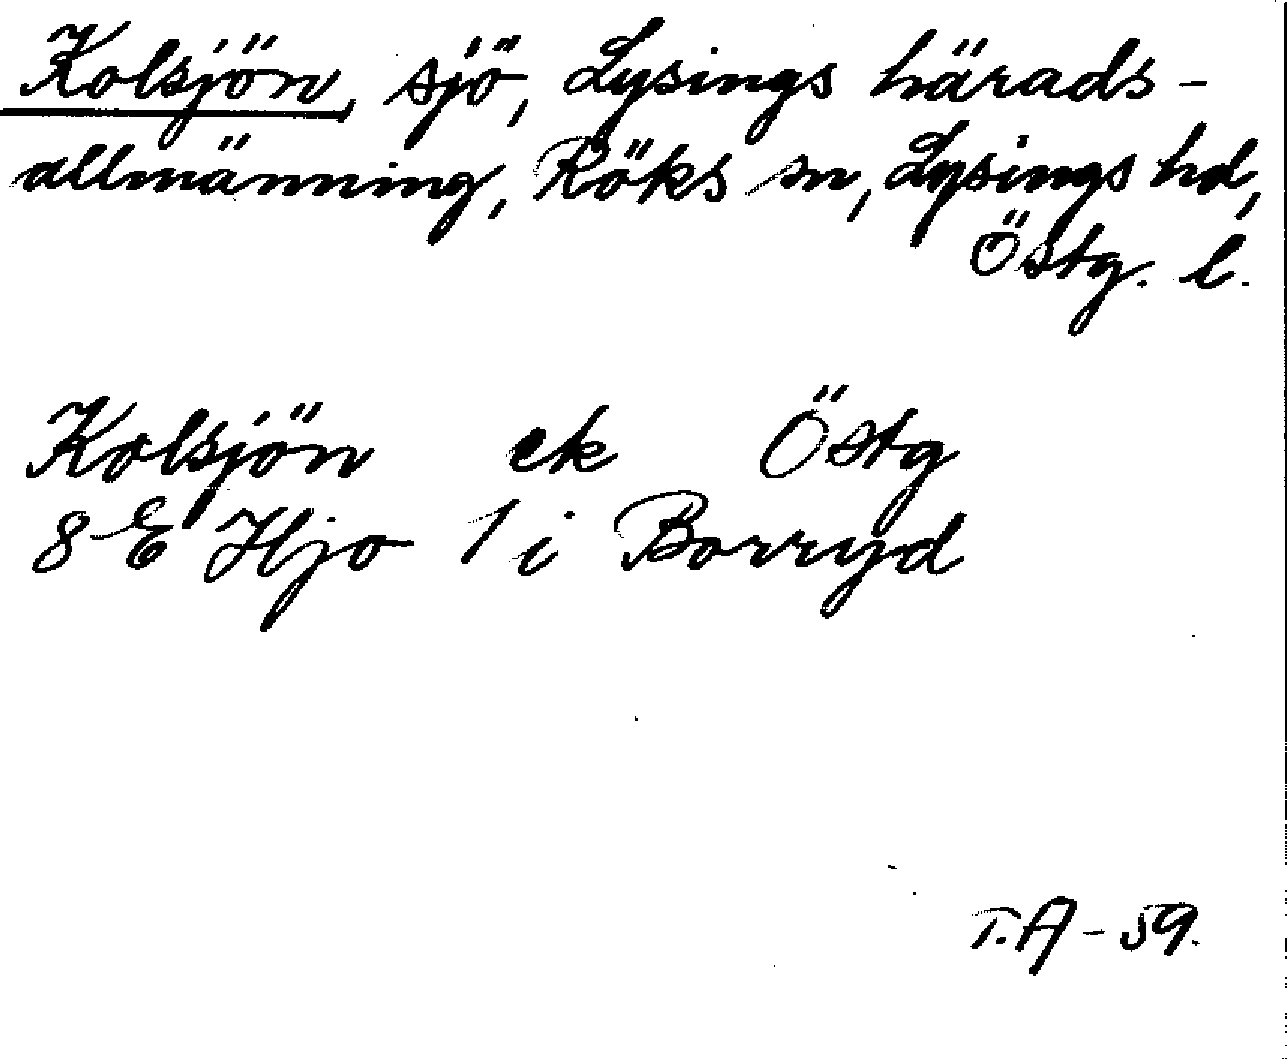 Kolsjön, sjö, Lysings härads-
allmänning, Röks sn, Lysings hd,
Östg. l.
Kolsjön ek Östg
8 E Hjo 1 i Borryd
T.A-59.